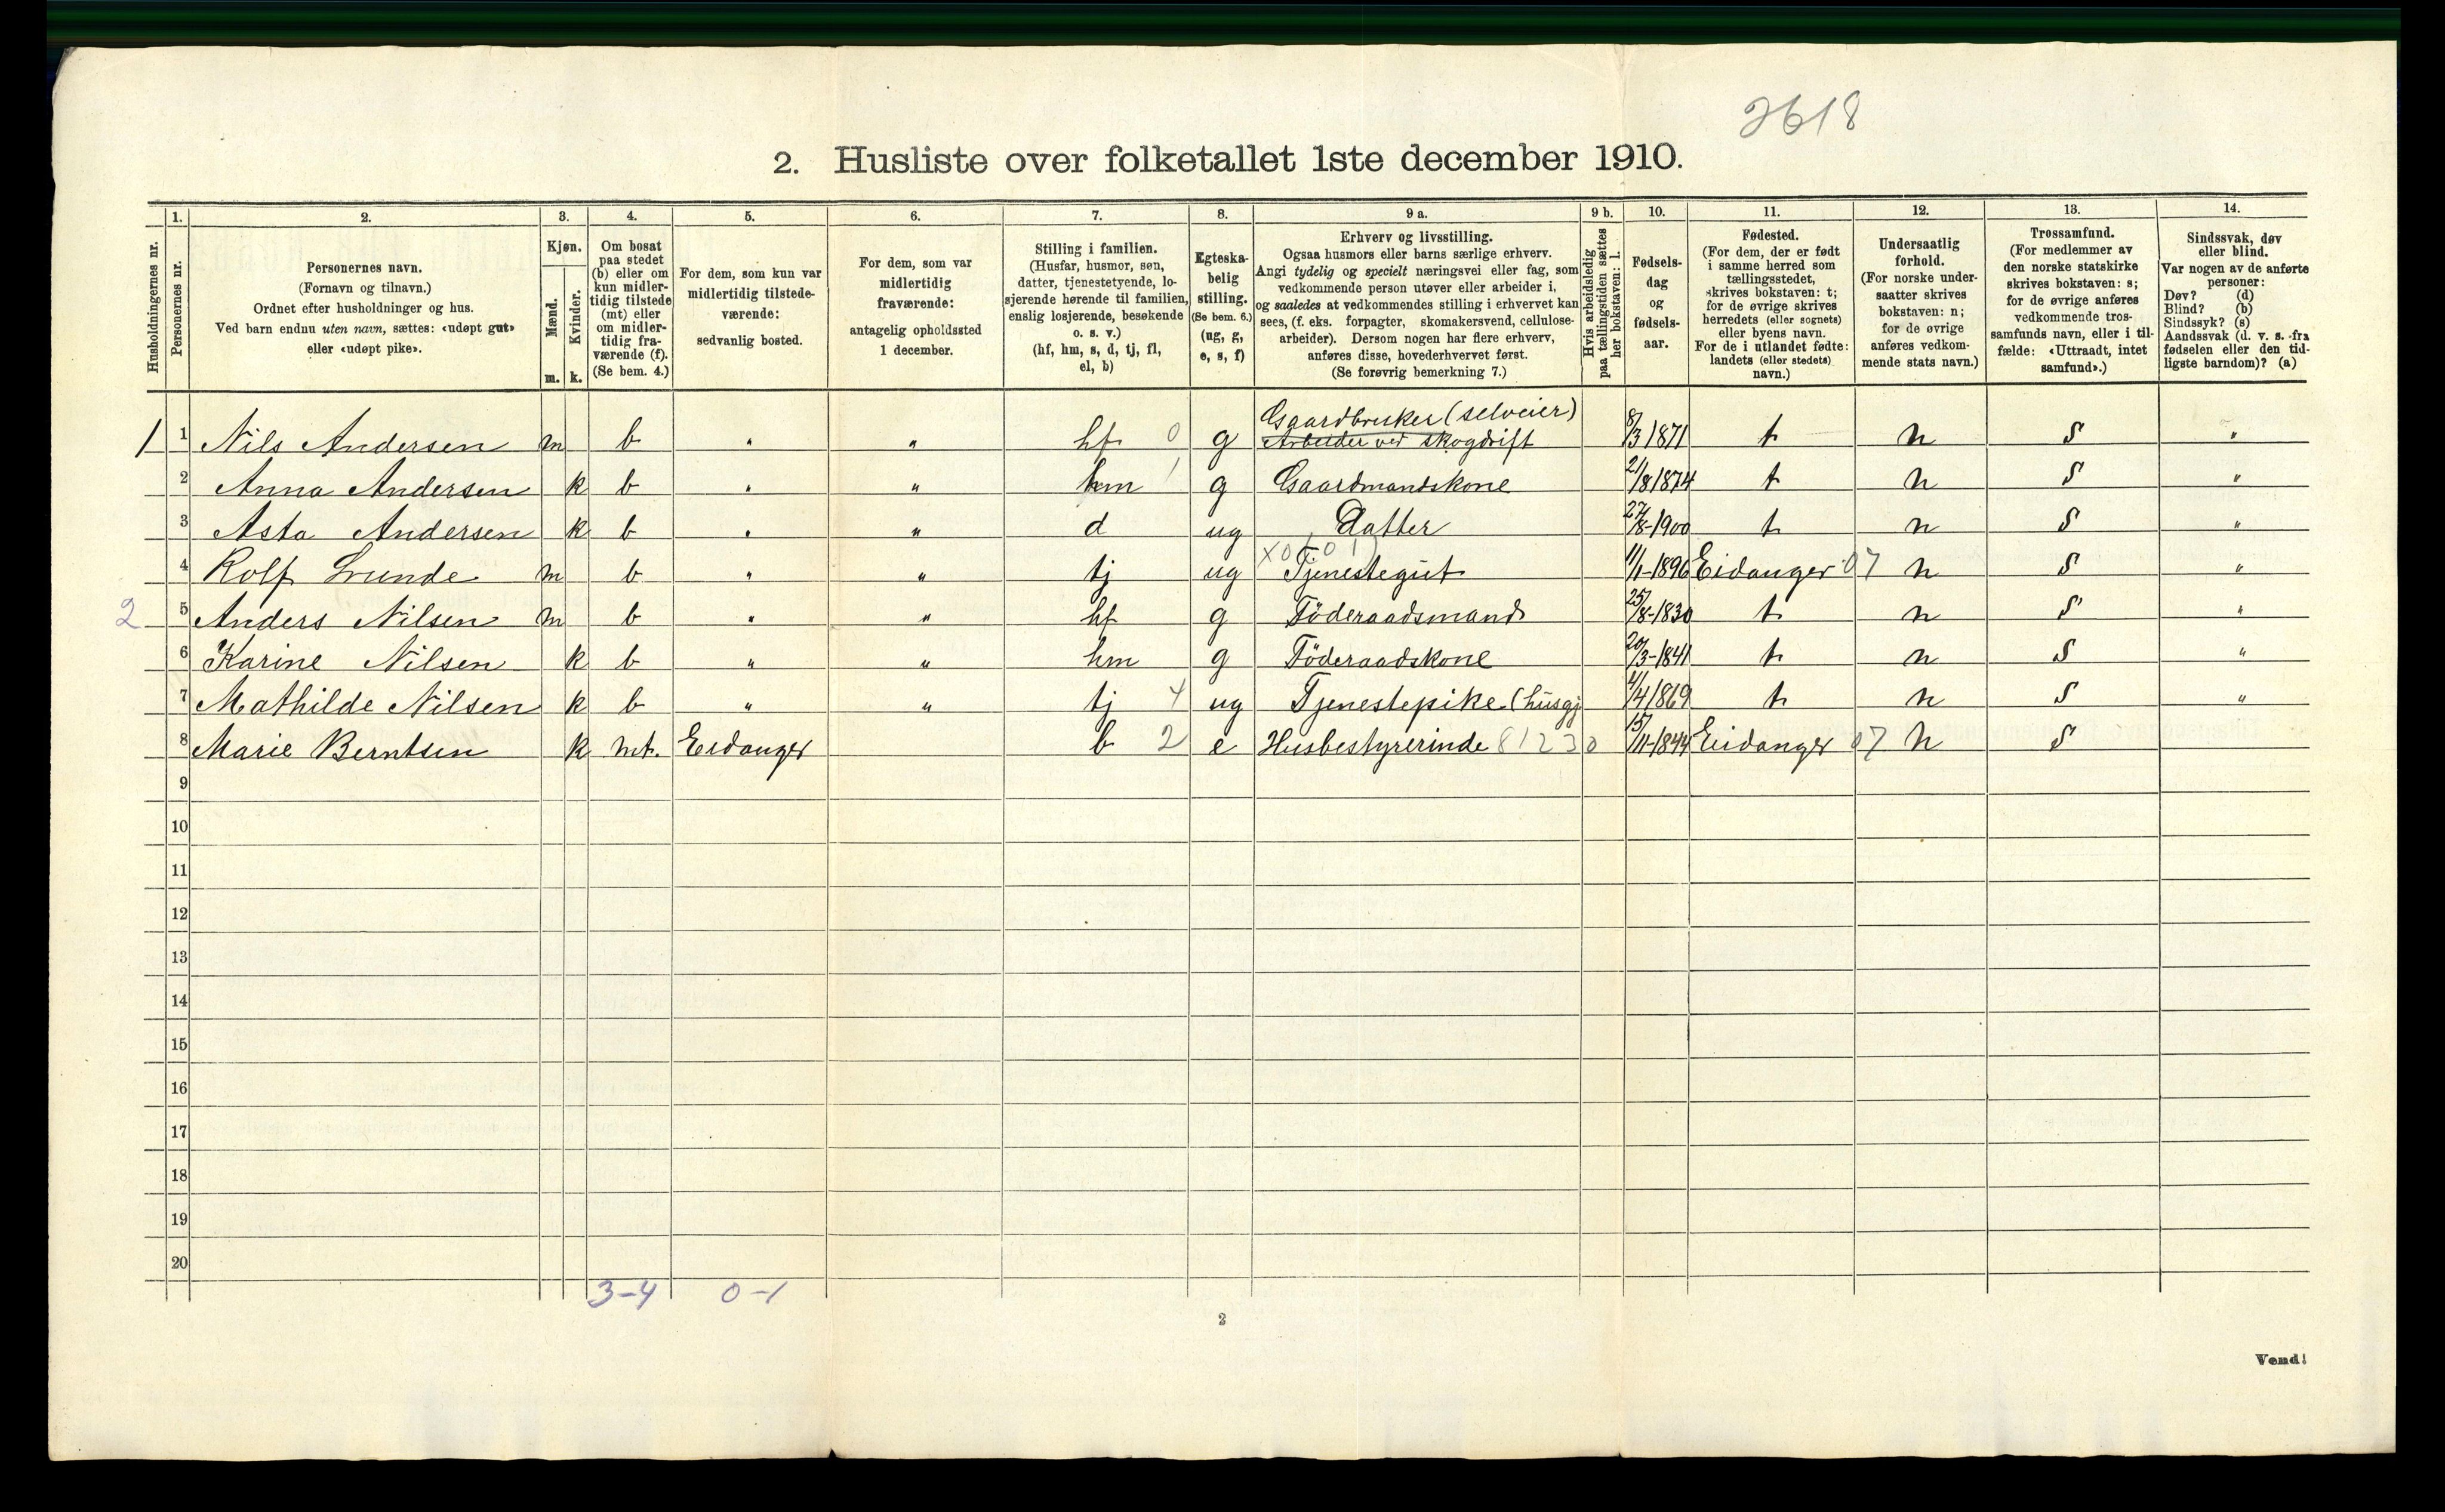 2618
2. Husliste over folketallet 1ste december 1910.
Husholdningernes nr.
1.
Personernes nr.
2.
Personernes navn.
(Fornavn og tilnavn.)
Ordnet efter husholdninger og hus.
Ved barn endnu uten navn, sættes: «udøpt gut»
eller «udøpt pike».
3.
Kjøn.
Mænd.
Kvinder.
m. k.
4.
Om bosat
paa stedet
(b) eller om
kun midler-
tidig tilstede
(mt) eller
om midler-
tidig fra-
værende (f).
(Se bem. 4.)
5.
For dem, som kun var
midlertidig tilstede-
værende:
sedvanlig bosted.
6.
For dem, som var
midlertidig
fraværende:
antagelig opholdssted
1 december.
7.
Stilling i familien.
(Husfar, husmor, søn,
datter, tjenestetyende, lo-
sjerende hørende til familien,
enslig losjerende, besøkende
o. s. v.)
(hf, hm, s, d, tj, fl,
el, b)
8.
Egteska-
belig
stilling.
(Se bem. 6.)
(ug, g,
e, s, f)
9 a.
Erhverv og livsstilling.
Ogsaa husmors eller barns særlige erhverv.
Angi tydelig og specielt næringsvei eller fag, som
vedkommende person utøver eller arbeider i,
og saaledes at vedkommendes stilling i erhvervet kan
sees, (f. eks. forpagter, skomakersvend, cellulose-
arbeider). Dersom nogen har flere erhverv,
anføres disse, hovederhvervet først.
(Se forøvrig bemerkning 7.)
9 b.
Hvis arbeidsledig
paa tællingstiden sættes
her bokstaven: l.
10.
Fødsels-
dag
og
fødsels-
aar.
11.
Fødested.
(For dem, der er født
i samme herred som
tællingsstedet,
skrives bokstaven: t;
for de øvrige skrives
herredets (eller sognets)
eller byens navn.
For de i utlandet fødte:
landets (eller stedets)
navn.)
12.
Undersaatlig
forhold.
(For norske under-
saatter skrives
bokstaven: n;
for de øvrige
anføres vedkom-
mende stats navn.)
13.
Trossamfund.
(For medlemmer av
den norske statskirke
skrives bokstaven: s;
for de øvrige anføres
vedkommende tros-
samfunds navn, eller i til-
fælde: «Uttraadt, intet
samfund».)
14.
Sindssvak, døv
eller blind.
Var nogen av de anførte
personer:
Døv? (d)
Blind? (b)
Sindssyk? (s)
Aandssvak (d. v. s. fra
fødselen eller den tid-
ligste barndom)? (a)
Gaardbruker (selveier)
1 1 Nils Andersen m b " " hf 0 g Arbeider ved skogdrift 8/3 1871 t n S "
2 Anna Andersen k b " " hm 1 g Gaardmandskone 21/8 1874 t n S "
3 Asta Andersen k b " " d ug Datter 27/8-1900 t n S "
4 Rolf Lunde m b " " tj ug Tjenestegut 11/1-1896 Eidanger 07 n S "
2 5 Anders Nilsen m b " " hf g Föderaadsmand 25/8-1830 t n S "
6 Karine Nilsen k b " " hm g Föderaadskone 20/3-1841 t n S "
7 Mathilde Nilsen k b " " tj 4 ug Tjenestepike (husgj 4/4 1869 t n S "
8 Marie Berntsen k mt. Eidanger b 2 e Husbestyrerinde 81230 15/11-1844 Eidanger 07 n S
9
10
11
12
13
14
15
16
17
18
19
20
3-4 0-1
2
Vend!